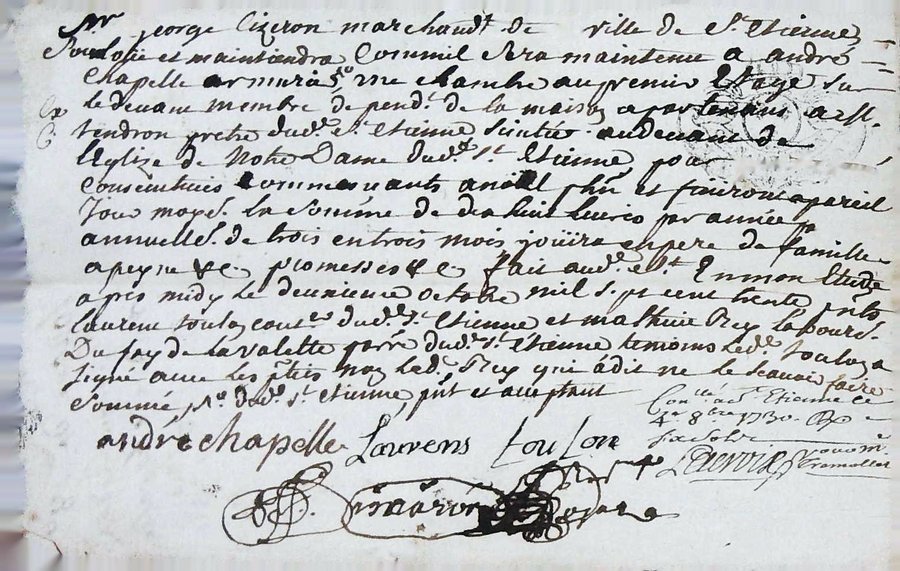 Sr george Cizeron marchandt de ville de St Etienne
et maintiendra Comme il sera maintenu a andré
Chapelle armurié So. Une chambre au premier Etage sur
le devant membre de pendt. de la maison apartenant a Mr.
tendron prebtre dudt. St. Etienne scituée audevant de
l'Eglise de Notre Dame dudt. St. Etienne pour
consecutives Commençants a noël phn et fauront a pareil
Jour moyet. la Somme de dix huit livres par année
annuellet. de trois en trois mois joüira en pere de famille
a peyne &c promesses &c fait audt. St. En mon Etude
apres midy le deuxieme octobre mil sept cent trente pnts
laurent toulon dudt. St. Etienne et mathieu Rey labourr.
Du fay de la valette parre dudt. St. Etienne temoins led. toulon a
signé avec les pties non led. Rey qui a dit ne le scavoir faire
sommé, Sr dudt. St. Etienne pnt et aceptant
andré chapelle Laurens Toulon
Conllé a St Etienne ce
4e 8bre 1730